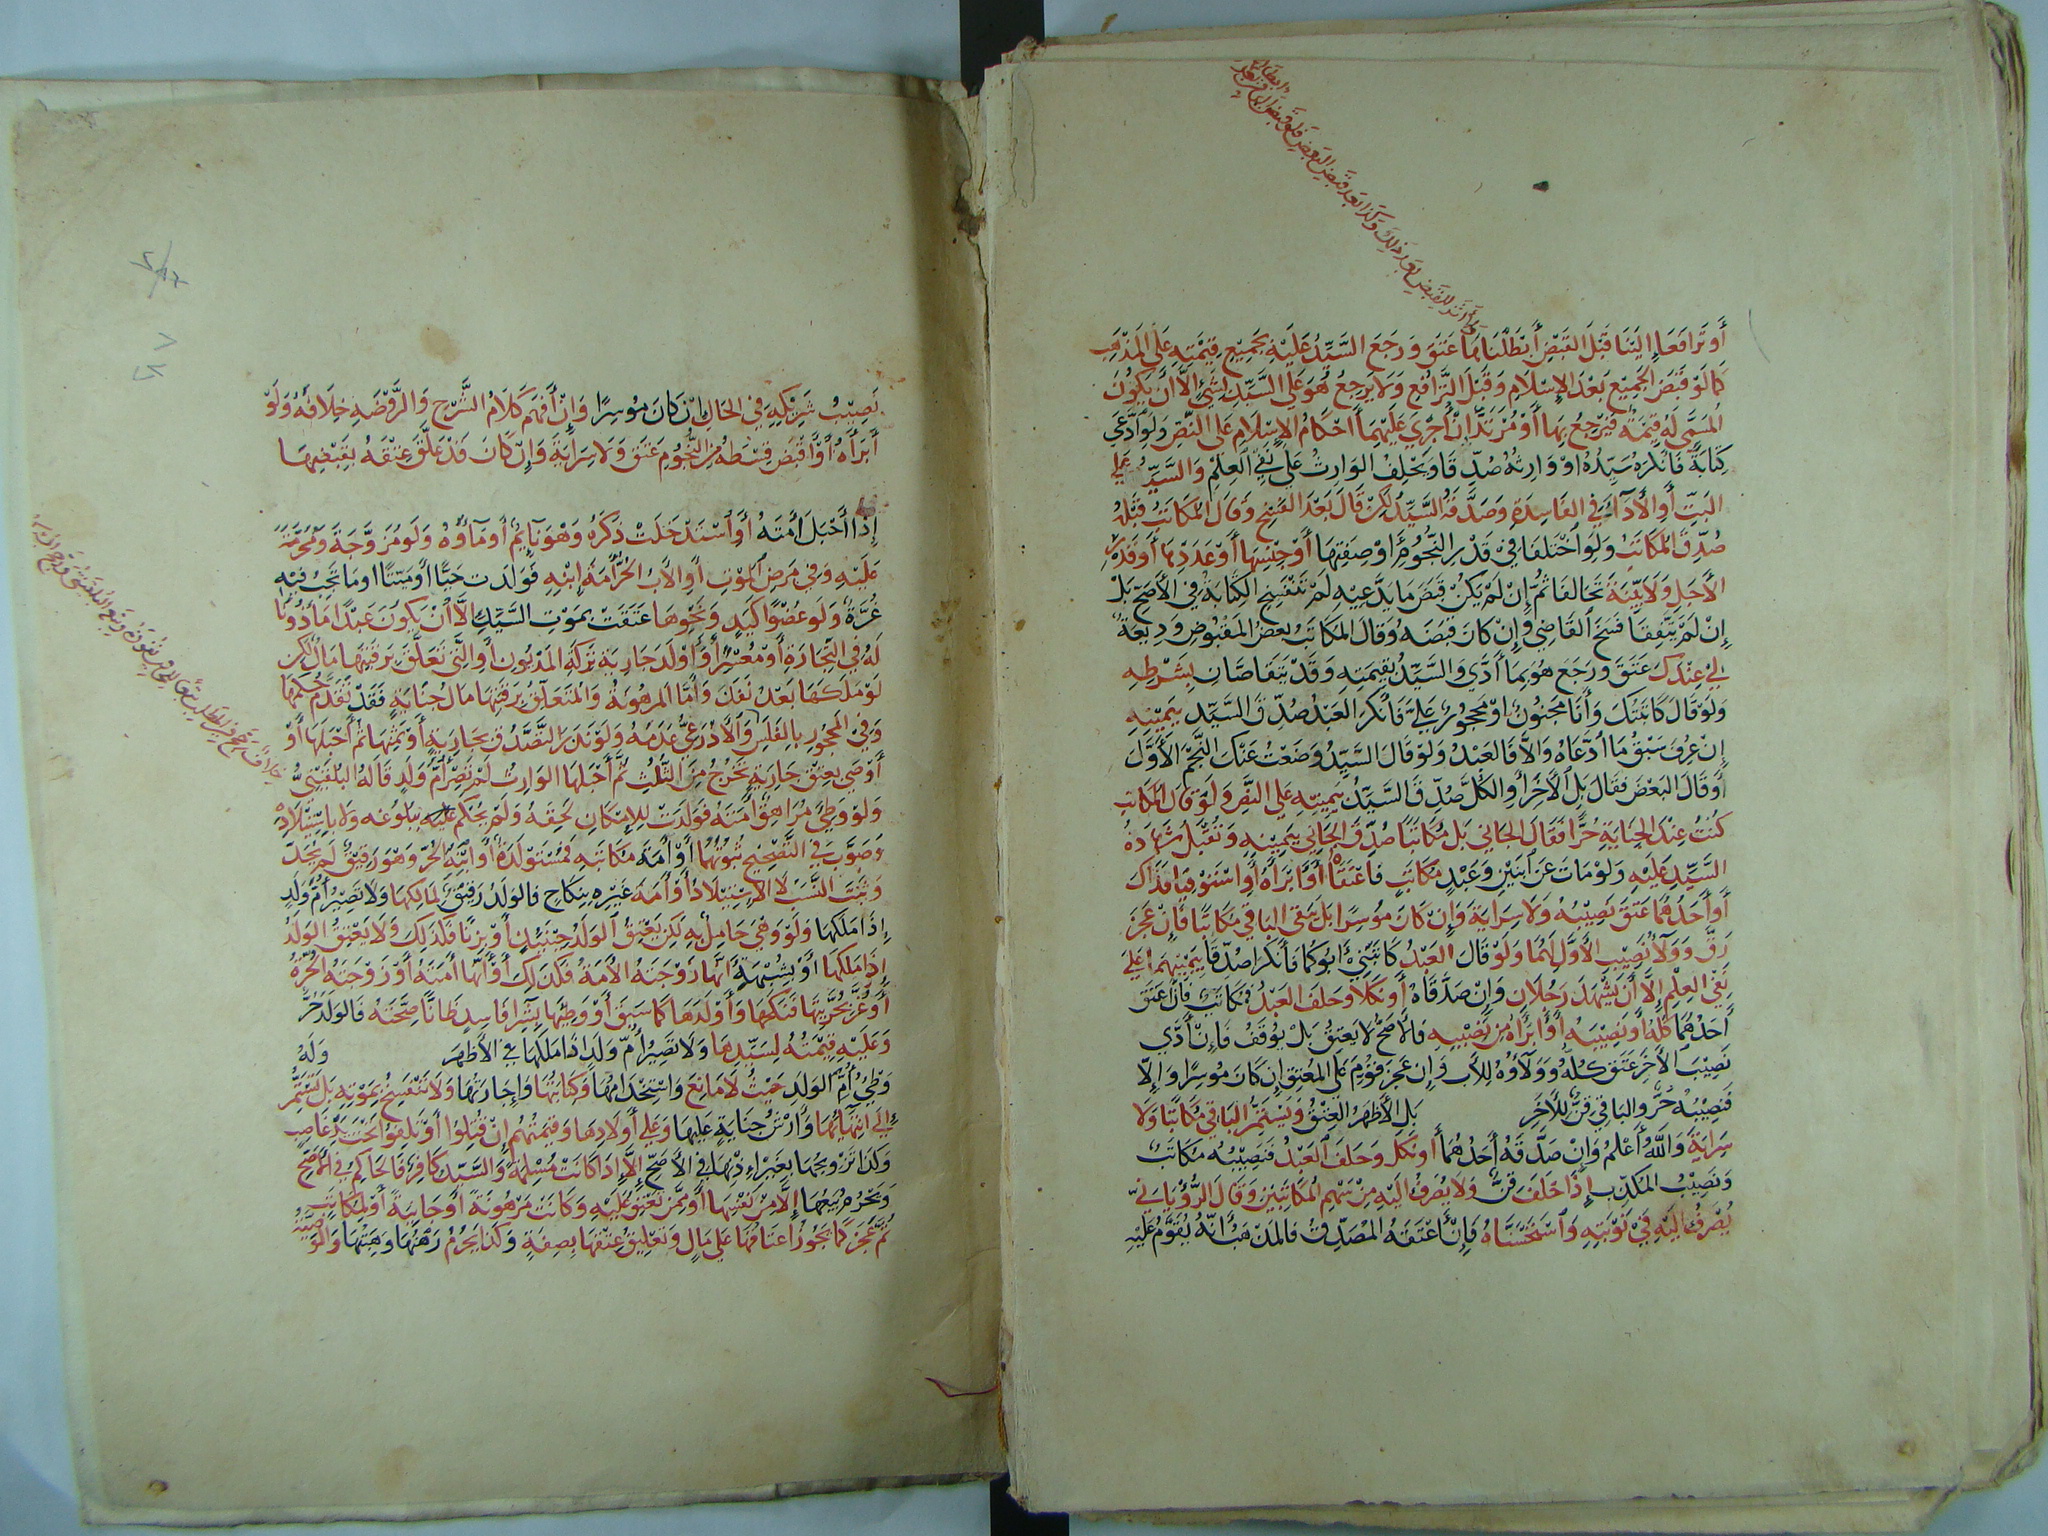 أَوْ تَرَافَعَا إِلَيْنَا قَبْلَ القَبْضِ أَبْطَلْنَاهَا عَتَقَ وَرَجَعَ السَّيِّدُ عَلَيْهِ بِجَمِيْعِ قِيْمَتِهِ عَلَى المَذْهَبِ
كَمَا لَوْ قَبَضَ الجَمِيْعَ بَعْدَ الإِسْلَامِ وَقَبْلَ التَّرَافُعِ وَلَا يَرْجِعُ هُوَ عَلَى السَّيِّدِ بِشَيْءٍ إِلَّا أَنْ يَكُوْنَ
المُسَمَّى لَهُ قِيْمَةٌ فَيَرْجِعُ بِهَا أَوْ مُرْتَدَّانِ أُجْرِيَ عَلَيْهِمَا أَحْكَامُ الإِسْلَامِ عَلَى النَّصِّ وَلَوِ ادَّعَى
كِتَابَةً فَأَنْكَرَهُ سَيِّدُهُ أَوْ وَارِثُهُ صُدِّقَا وَيَحْلِفُ الوَارِثُ عَلَى نَفْيِ العِلْمِ وَالسَّيِّدُ عَلَى
البَتِّ أَوِ الأَدَاءَ فِي الفَاسِدَةِ وَصَدَّقَهُ السَّيِّدُ لَكِنْ قَالَ بَعْدَ الفَسْخِ وَقَالَ المُكَاتَبُ قَبْلَهُ
صُدِّقَ المُكَاتَبُ وَلَوِ اخْتَلَفَا فِي قَدْرِ النُّجُوْمِ أَوْ صِفَتِهَا أَوْ جِنْسِهَا أَوْ عَدَدِهَا أَوْ قَدْرِ
الأَجَلِ وَلَا بَيِّنَةَ تَحَالَفَا ثُمَّ إِنْ لَمْ يَكُنْ قَبَضَ مَا يَدَّعِيْهِ لَمْ تَنْفَسِخِ الكِتَابَةُ فِي الأَصَحِّ بَلْ
إِنْ لَمْ يَتَّفِقَا فَسَخَ القَاضِي وَإِنْ كَانَ قَبَضَهُ وَقَالَ المُكَاتَبُ بَعْضُ المَقْبُوْضِ وَدِيْعَةٌ
لِي عِنْدَكَ عَتَقَ وَرَجَعَ هُوَ بِمَا أَدَّى وَالسَّيِّدُ بِقِيْمَتِهِ وَقَدْ يَتَقَاصَّانِ بِشَرْطِهِ
وَلَوْ قَالَ كَاتَبْتُكَ وَأَنَا مَجْنُوْنٌ أَوْ مَحْجُوْرٌ عَلَيَّ فَأَنْكَرَ العَبْدُ صُدِّقَ السَّيِّدُ بِيَمِيْنِهِ
إِنْ عُرِفَ سَبْقُ مَا ادَّعَاهُ وَإِلَّا فَالعَبْدُ وَلَوْ قَالَ السَّيِّدُ وَضَعْتُ عَنْكَ النَّجْمَ الأَوَّلَ
أَوْ قَالَ البَعْضَ فَقَالَ بَلِ الآخِرَ أَوِ الكُلَّ صُدِّقَ السَّيِّدُ بِيَمِيْنِهِ عَلَى النَّصِّ وَلَوْ قَالَ المُكَاتَبُ
كُنْتُ عِنْدَ الجِنَايَةِ حُرًّا فَقَالَ الجَانِي بَلْ مُكَاتَبًا صُدِّقَ الجَانِي بِيَمِيْنِهِ وَتُقْبَلُ شَهَادَةُ
السَّيِّدِ عَلَيْهِ وَلَوْ مَاتَ عَنِ ابْنَيْنِ وَعَبْدٍ مُكَاتَبٍ فَأَعْتَقَا أَوْ أَبْرَآهُ أَوِ اسْتَوْفَيَا فَذَاكَ
أَوْ أَحَدُهُمَا عَتَقَ نَصِيْبُهُ وَلَا سِرَايَةَ وَإِنْ كَانَ مُوْسِرًا بَلْ يَبْقَى البَاقِي مُكَاتَبًا فَإِنْ عَجَزَ
رَقَّ وَوَلَاءُ نَصِيْبِ الأَوَّلِ لَهُمَا وَلَوْ قَالَ العَبْدُ كَاتَبَنِي أَبُوْكُمَا فَأَنْكَرَا صُدِّقَا بِيَمِيْنِهِمَا عَلَى
نَفْيِ العِلْمِ إِلَّا أَنْ يَشْهَدَ رَجُلَانِ وَإِنْ صَدَّقَاهُ أَوْ نَكَلَا وَحَلَفَ العَبْدُ فَمُكَاتَبٌ فَإِنْ أَعْتَقَ
أَحَدُهُمَا كُلَّهُ أَوْ نَصِيْبَهُ أَوْ أَبْرَأَهُ مِنْ نَصِيْبِهِ فَالأَصَحُّ لَا يَعْتِقُ بَلْ يُوْقَفُ فَإِنْ أَدَّى
نَصِيْبَ الآخَرِ عَتَقَ كُلُّهُ وَوَلَاؤُهُ لِلْأَبِ وَإِنْ عَجَزَ قُوِّمَ عَلَى المُعْتِقِ إِنْ كَانَ مُوْسِرًا وَإِلَّا
فَنَصِيْبُهُ حُرٌّ وَالبَاقِي قِنٌّ لِلْآخَرِ بَلِ الأَظْهَرُ العِتْقُ وَيَسْتَمِرُّ البَاقِي مُكَاتَبًا وَلَا
سِرَايَةَ وَاللهُ أَعْلَمُ وَإِنْ صَدَّقَهُ أَحَدُهُمَا أَوْ نَكَلَ وَحَلَفَ العَبْدُ فَنَصِيْبُهُ مُكَاتَبٌ
وَنَصِيْبُ المُكَذِّبِ إِذَا حَلَفَ قِنٌّ وَلَا يُصْرَفُ إِلَيْهِ مِنْ سَهْمِ المُكَاتَبِيْنَ وَقَالَ الرُّوْيَانِيُّ
يُصْرَفُ إِلَيْهِ فِي نَوْبَتِهِ وَاسْتَحْسَنَاهُ فَإِنْ أَعْتَقَهُ المُصَدِّقُ فَالمَذْهَبُ أَنَّهُ يُقَوَّمُ عَلَيْهِ
نَصِيْبُ شَرِيْكِهِ فِي الحَالِ إِنْ كَانَ مُوْسِرًا وَإِنْ أَفْهَمَ كَلَامُ الشَّرْحِ وَالرَّوْضَةِ خِلَافَهُ وَلَوْ
أَبْرَأَهُ أَوْ قَبَضَ قِسْطَهُ مِنَ النُّجُوْمِ عَتَقَ وَلَا سِرَايَةَ وَإِنْ كَانَ قَدْ عَلَّقَ عِتْقَهُ بِقَبْضِهَا
إِذَا أَحْبَلَ أَمَتَهُ أَوِ اسْتَدْخَلَتْ ذَكَرَهُ وَهُوَ نَائِمٌ أَوْ مَاءَهُ وَلَوْ مُزَوَّجَةً وَمُحَرَّمَةً
عَلَيْهِ وَفِي مَرَضِ المَوْتِ أَوِ الأَبُ الحُرُّ أَمَةَ ابْنِهِ فَوَلَدَتْ حَيًّا أَوْ مَيِّتًا أَوْ مَا تَجِبُ فِيْهِ
غُرَّةٌ وَلَوْ عُضْوًا كَيَدٍ وَنَحْوِهَا عَتَقَتْ بِمَوْتِ السَّيِّدِ إِلَّا أَنْ يَكُوْنَ عَبْدًا مَأْذُوْنًا
لَهُ فِي التِّجَارَةِ أَوْ مُعْسِرًا وَأَوْلَدَ جَارِيَةَ تَرِكَةِ المَدْيُوْنِ أَوِ الَّتِي تَعَلَّقَ بِرَقَبَتِهَا مَالٌ لَكِنْ
لَوْ مَلَكَهَا بَعْدُ نَفَذَ وَأَمَّا المَرْهُوْنَةُ وَالمُتَعَلِّقُ بِرَقَبَتِهَا مَالُ جِنَايَةٍ فَقَدْ تَقَدَّمَ حُكْمُهَا
وَفِي المَحْجُوْرِ بِالفَلَسِ وَالأَذْرَعِيُّ عَدَمَهُ وَلَوْ نَذَرَ التَّصَدُّقَ بِجَارِيَةٍ أَوْ بِثَمَنِهَا ثُمَّ أَحْبَلَهَا أَوْ
أَوْصَى بِعِتْقِ جَارِيَةٍ تَخْرُجُ مِنَ الثُّلُثِ ثُمَّ أَحْبَلَهَا الوَارِثُ لَمْ تَصِرْ أُمَّ وَلَدٍ قَالَهُ البُلْقِيْنِيُّ
وَلَوْ وَطِئَ مُرَاهِقٌ أَمَتَهُ فَوَلَدَتْ لِلْإِمْكَانِ لَحِقَهُ وَلَمْ يُحْكَمْ عَلَيْهِ بِبُلُوْغِهِ وَلَا بِاسْتِيْلَادٍ
وَصَوَّبَ فِي التَّصْحِيْحِ ثُبُوْتَهُمَا أَوْ أَمَةَ مُكَاتَبِهِ فَمُسْتَوْلَدَةٌ أَوِ ابْنِهِ الحُرِّ وَهُوَ رَقِيْقٌ لَمْ يُحَدَّ
وَثَبَتَ النَّسَبُ لَا الِاسْتِيْلَادُ أَوْ أَمَةَ غَيْرِهِ بِنِكَاحٍ فَالوَلَدُ رَقِيْقٌ لِمَالِكِهَا وَلَا تَصِيْرُ أُمَّ وَلَدٍ
إِذَا مَلَكَهَا وَلَوْ وَهِيَ حَامِلٌ بِهِ لَكِنْ يَعْتِقُ الوَلَدُ حِيْنَئِذٍ أَوْ بِزِنًا فَكَذَلِكَ وَلَا يَعْتِقُ الوَلَدُ
إِذَا مَلَكَهَا أَوْ بِشُبْهَةِ أَنَّهَا زَوْجَتُهُ الأَمَةُ فَكَذَلِكَ أَوْ أَنَّهَا أَمَتُهُ أَوْ زَوْجَتُهُ الحُرَّةُ
أَوْ غُرَّ بِحُرِّيَّتِهَا فَنَكَحَهَا وَأَوْلَدَهَا كَمَا سَبَقَ أَوْ وَطِئَهَا بِشِرًا فَاسِدٍ ظَانًّا صِحَّتَهُ فَالوَلَدُ حُرٌّ
وَعَلَيْهِ قِيْمَتُهُ لِسَيِّدِهَا وَلَا تَصِيْرُ أُمَّ وَلَدٍ إِذَا مَلَكَهَا فِي الأَظْهَرِ وَلَهُ
وَطْيُ أُمِّ الوَلَدِ حَيْثُ لَا مَانِعَ وَاسْتِخْدَامُهَا وَكِتَابَتُهَا وَإِجَارَتُهَا وَلَا تَنْفَسِخُ بِمَوْتِهِ بَلْ تَسْتَمِرُّ
إِلَى انْتِهَائِهَا وَأَرْشُ جِنَايَةٍ عَلَيْهَا وَعَلَى أَوْلَادِهَا وَقِيْمَتُهُمْ إِنْ قُتِلُوا أَوْ تَلِفُوا تَحْتَ يَدِ غَاصِبٍ
وَكَذَا تَزْوِيْجُهَا بِغَيْرِ إِذْنِهَا فِي الأَصَحِّ إِلَّا إِذَا كَانَتْ مُسْلِمَةً وَالسَّيِّدُ كَافِرٌ فَالحَاكِمُ فِي الأَصَحِّ
وَيَحْرُمُ بَيْعُهَا إِلَّا مِنْ نَفْسِهَا أَوْ مِمَّنْ تَعْتِقُ عَلَيْهِ وَكَانَتْ مَرْهُوْنَةً أَوْ جَانِيَةً أَوْ لِمُكَاتَبٍ
ثُمَّ عَجَزَ كَمَا يَجُوْزُ إِعْتَاقُهَا عَلَى مَالٍ وَتَعْلِيْقُ عِتْقِهَا بِصِفَةٍ وَكَذَا يَحْرُمُ رَهْنُهَا وَهِبَتُهَا وَالوَصِيَّةُ